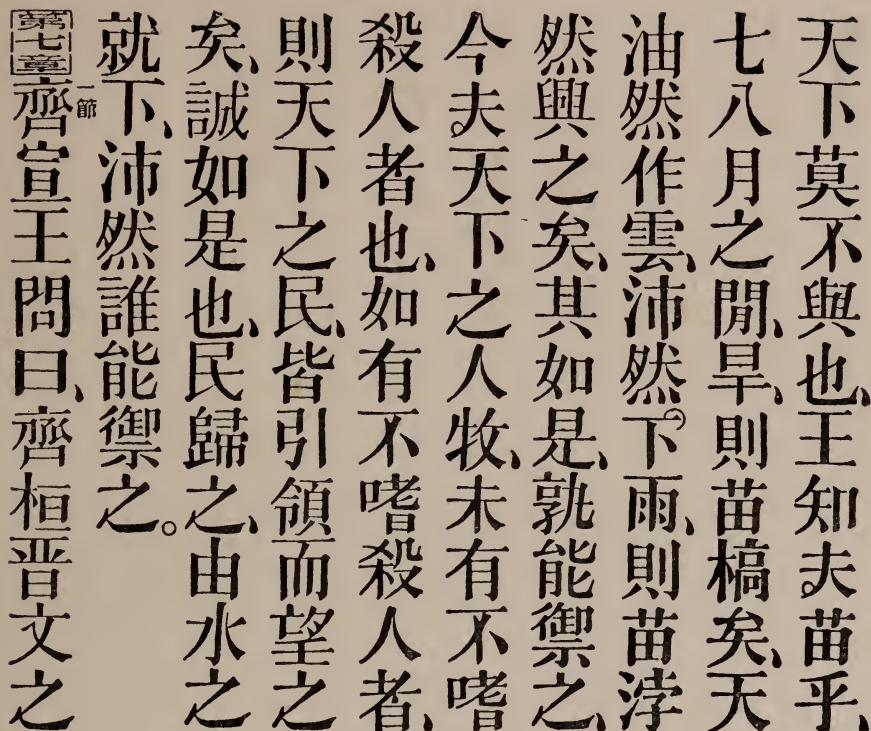 天下莫不與也、王知夫苗乎、
七八月之閒、旱、則苗槁矣、天
油然作雲、沛然下雨、則苗浡
然興之矣、其如是、孰能禦之、
今夫天下之人牧、未有不嗜
殺人者也、如有不嗜殺人者、
則天下之民、皆引領而望之
矣、誠如是也、民歸之、由水之
就下、沛然誰能禦之。
第七章 一節 齊宣王問曰、齊桓晋文之